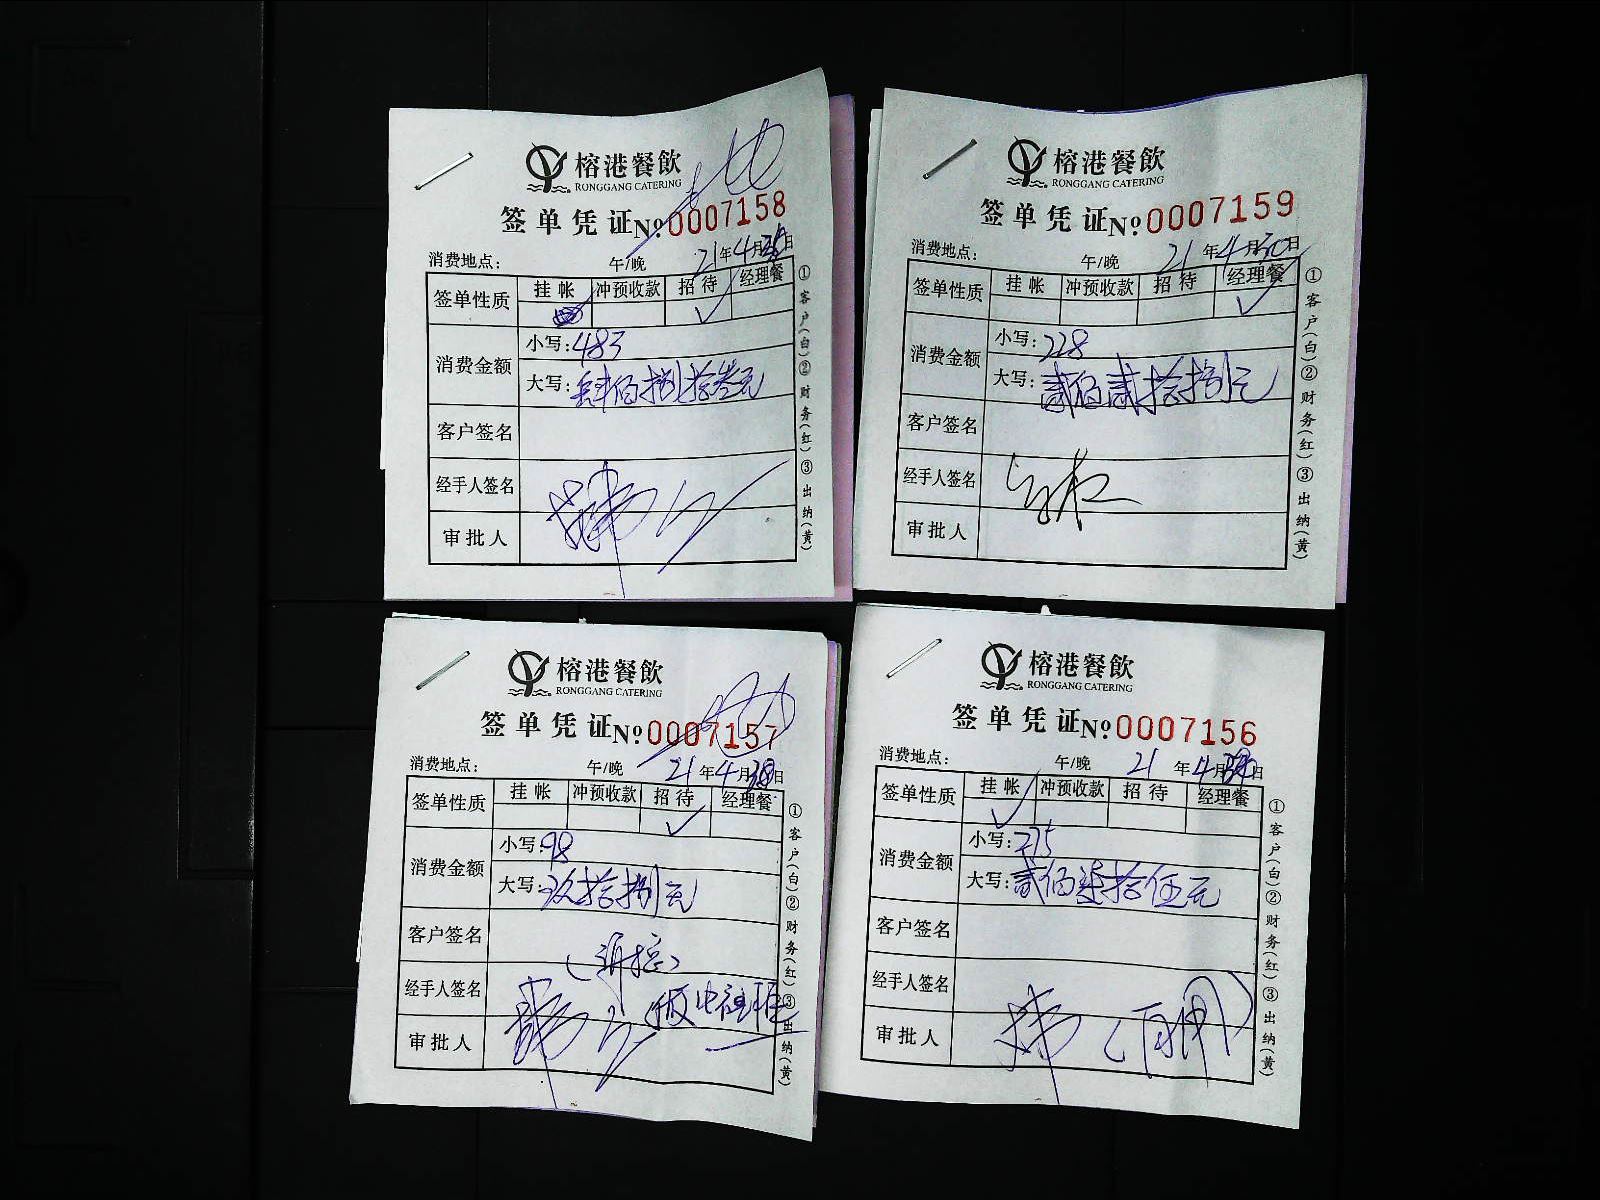 榕港餐飲
RONGGANG CATERING
签单凭证 №0007158
消费地点： 午/晚 21年4月日
签单性质 挂帐 冲预收款 招待 经理餐
✓
消费金额 小写：483
大写：肆佰捌拾叁元
客户签名
经手人签名
审批人
①客户(白)②财务(红)③出纳(黄)
榕港餐飲
RONGGANG CATERING
签单凭证 №0007159
消费地点： 午/晚 21年4月30日
签单性质 挂帐 冲预收款 招待 经理餐
✓
消费金额 小写：228
大写：贰佰贰拾捌元
客户签名
经手人签名
审批人
①客户(白)②财务(红)③出纳(黄)
榕港餐飲
RONGGANG CATERING
签单凭证 №0007157
消费地点： 午/晚 21年4月日
签单性质 挂帐 冲预收款 招待 经理餐
✓
消费金额 小写：98
大写：玖拾捌元
客户签名
经手人签名
审批人
①客户(白)②财务(红)③出纳(黄)
榕港餐飲
RONGGANG CATERING
签单凭证 №0007156
消费地点： 午/晚 21年4月日
签单性质 挂帐 冲预收款 招待 经理餐
✓
消费金额 小写：275
大写：贰佰柒拾伍元
客户签名
经手人签名
审批人
①客户(白)②财务(红)③出纳(黄)